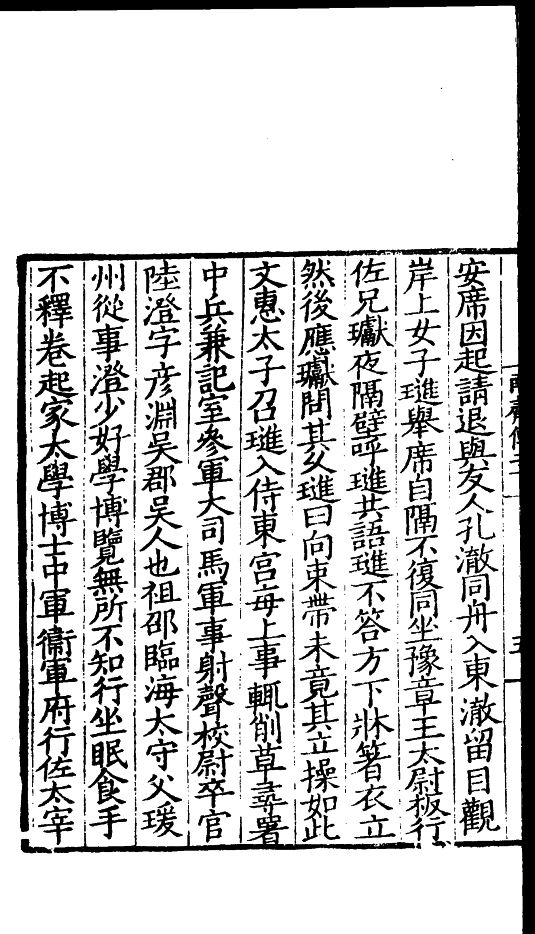 安席因起請退與友人孔澈同舟入東澈留目觀
岸上女子璡舉席自隔不復同坐豫章王太尉板行
佐兄瓛夜隔壁呼璡共語璡不答方下牀著衣立
然後應瓛問其久璡曰向束帶未竟其立操如此
文惠太子召璡入侍東宫每上事輒削草尋署
中兵兼記室參軍大司馬軍事射聲校尉卒官
陸澄字彦淵吳郡吳人也祖邵臨海太守父瑗
州從事澄少好學博覽無所不知行坐眠食手
不釋卷起家太學博士中軍衞軍府行佐太宰